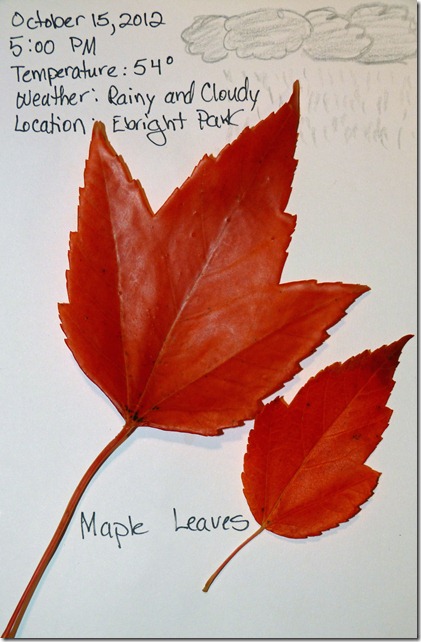 October 15, 2012
5:00 PM
Temperature: 54°
Weather: Rainy and Cloudy
Location: Ebright Park
Maple Leaves